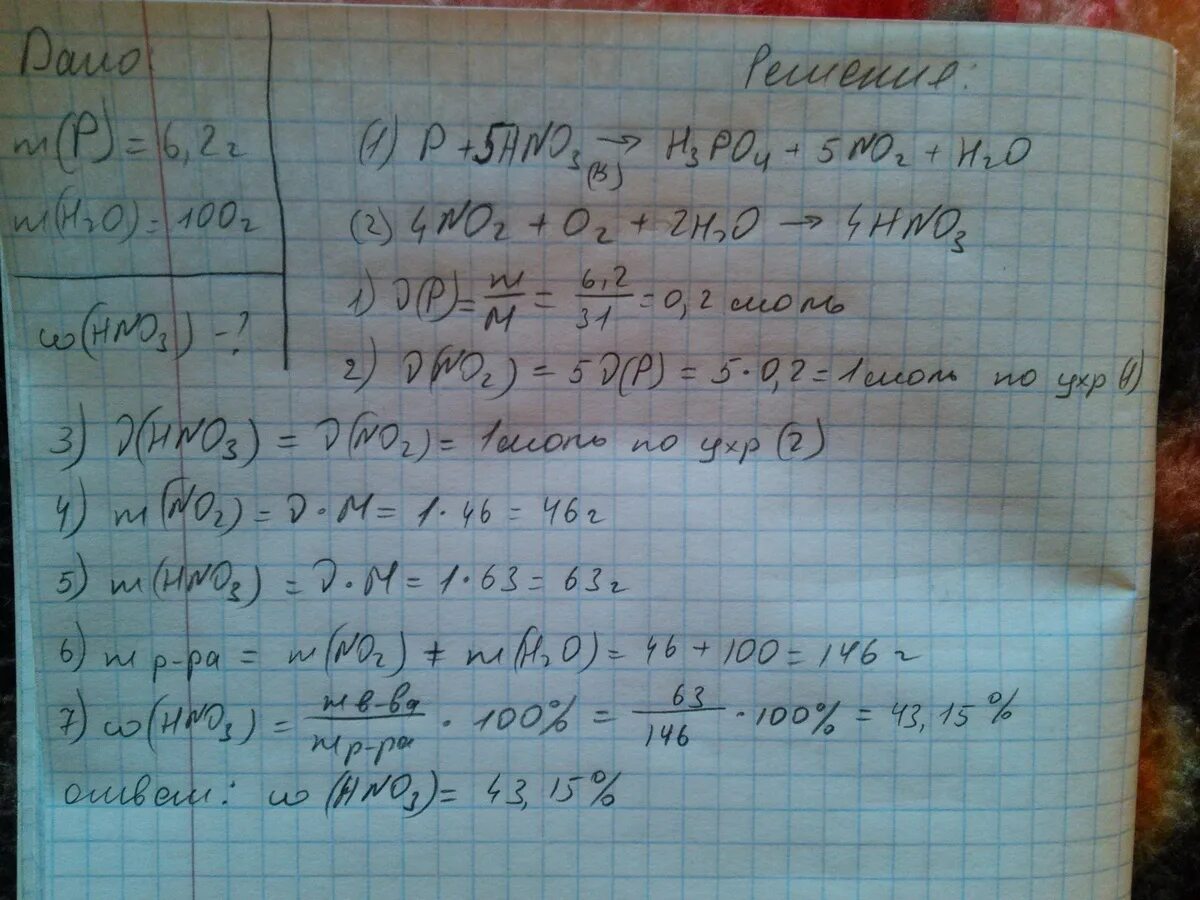 Дано:
m(P) = 6,2г
m(H₂O) = 100г
ω(HNO₃) - ?
Решения:
(1) P + 5HNO₃ (к) → H₃PO₄ + 5NO₂ + H₂O
(2) 4NO₂ + O₂ + 2H₂O → 4HNO₃
1) ν(P) = m/M = 6,2/31 = 0,2 моль
2) ν(NO₂) = 5ν(P) = 5·0,2 = 1моль по ухр (1)
3) ν(HNO₃) = ν(NO₂) = 1моль по ухр (2)
4) m(NO₂) = ν·M = 1·46 = 46г
5) m(HNO₃) = ν·M = 1·63 = 63г
6) m р-ра = m(NO₂) + m(H₂O) = 46 + 100 = 146 г
7) ω(HNO₃) = m в-ва/m р-ра · 100% = 63/146 · 100% = 43,15%
ответ: ω (HNO₃) = 43,15%